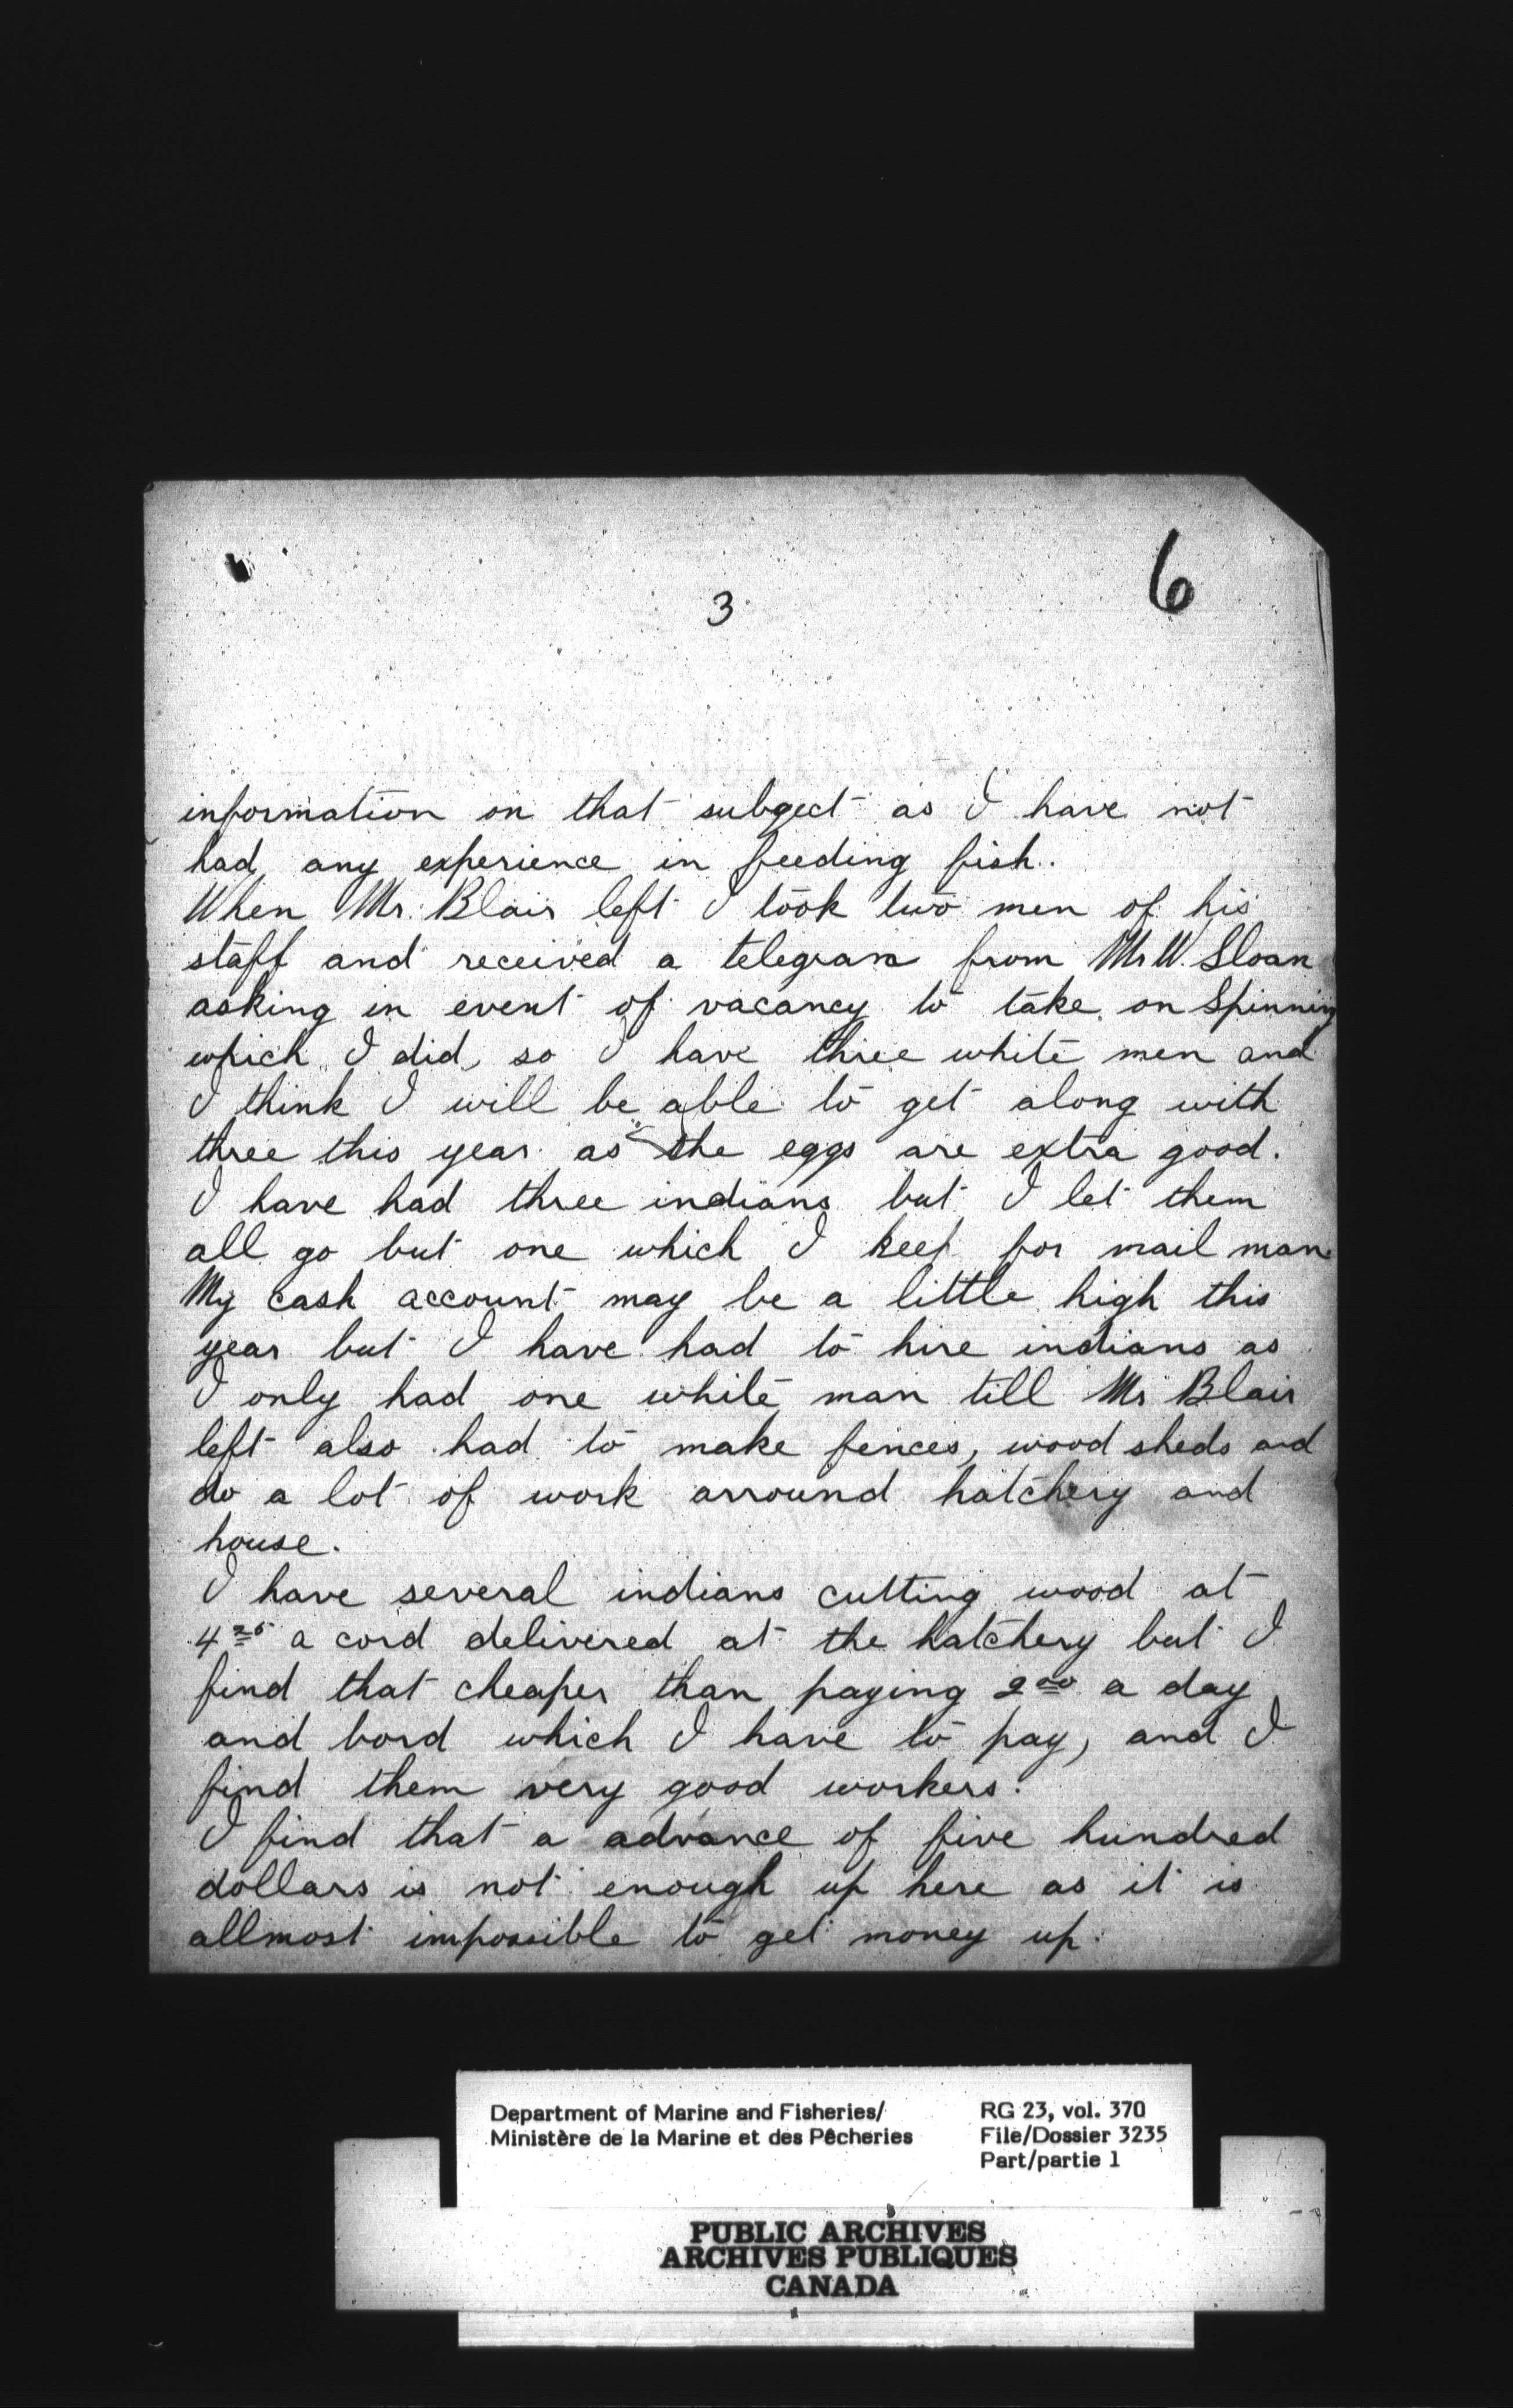 6
3
information on that subgect as I have not
had any experience in feeding fish.
When Mr. Blair left I took two men of his
staff and received a telegram from Mr W. Sloan
asking in event of vacancy to take on Spinning
which I did, so I have three white men and
I think I will be able to get along with
three this year as the eggs are extra good.
I have had three indians but I let them
all go but one which I keep for mail man.
My cash account may be a little high this
year but I have had to hire indians as
I only had one white man till Mr Blair
left also had to make fences, wood sheds and
do a lot of work arround hatchery and
house.
I have several indians cutting wood at
4 25 a cord delivered at the hatchery but I
find that cheaper than paying 2 00 a day
and bord which I have to pay, and I
find them very good workers.
I find that a advance of five hundred
dollars is not enough up here as it is
allmost impossible to get money up.
Department of Marine and Fisheries/
Ministère de la Marine et des Pêcheries
RG 23, vol. 370
File/Dossier 3235
Part/partie 1
PUBLIC ARCHIVES
ARCHIVES PUBLIQUES
CANADA